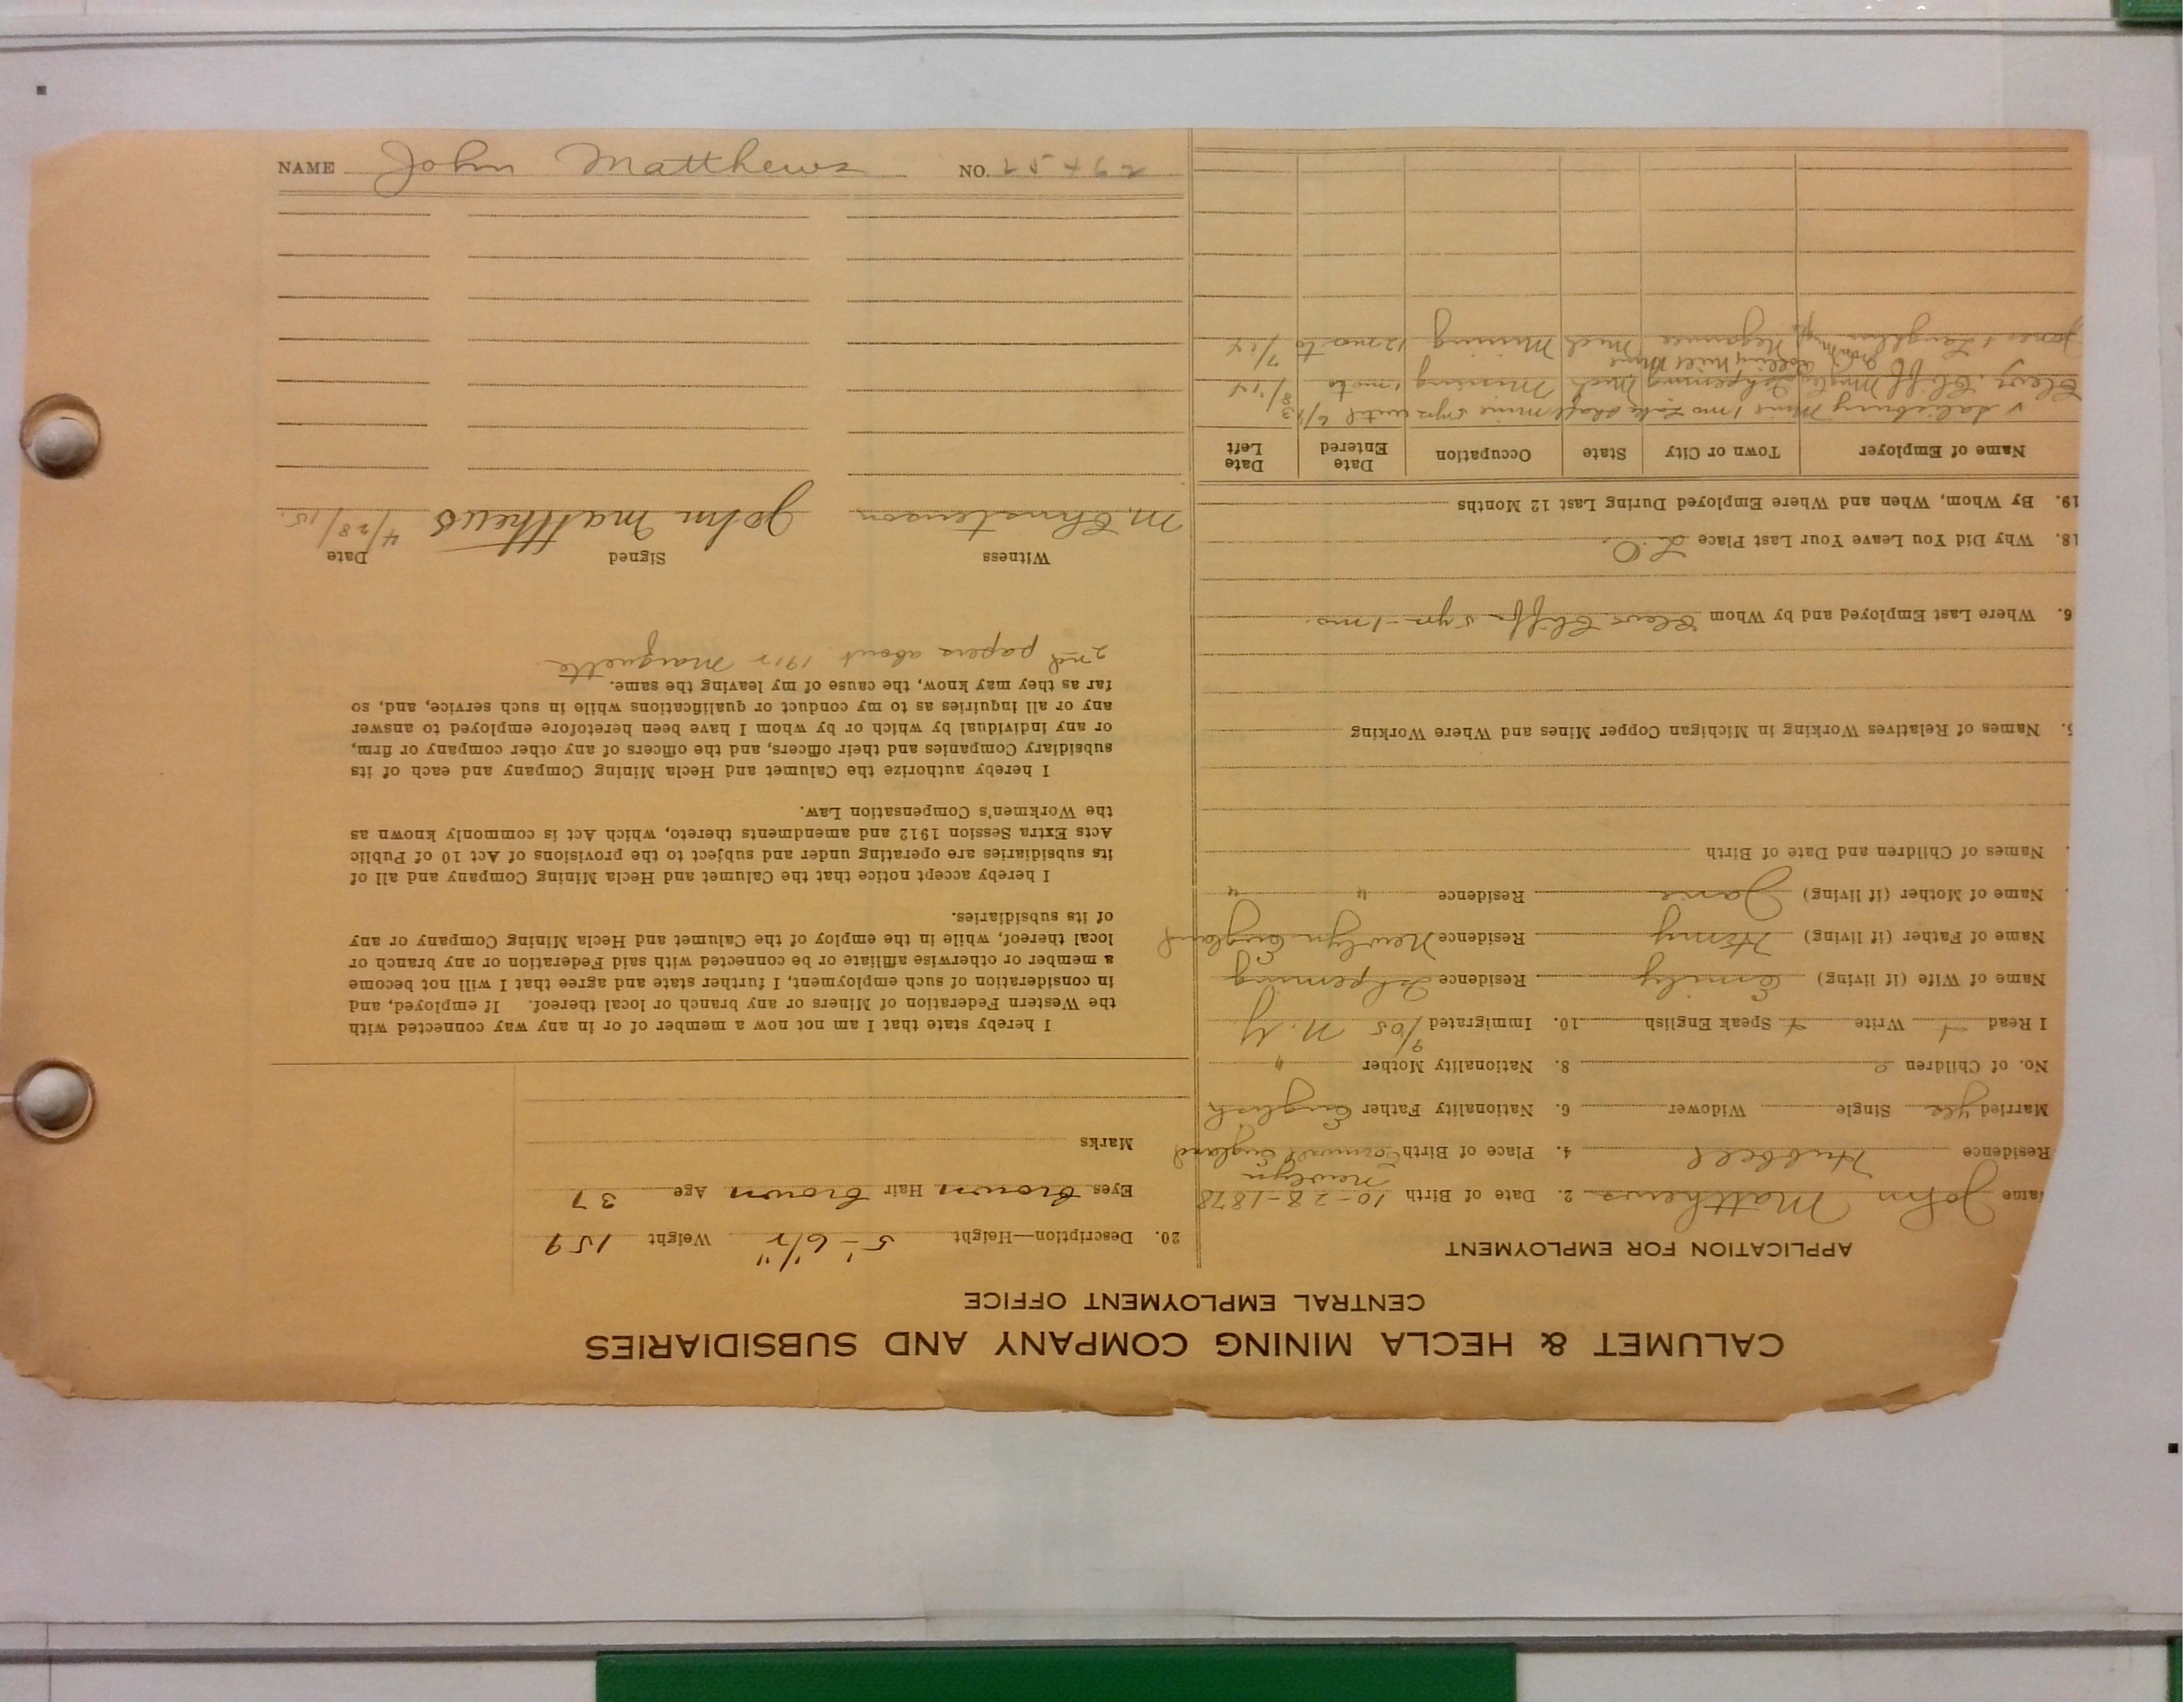 CALUMET & HECLA MINING COMPANY AND SUBSIDIARIES
CENTRAL EMPLOYMENT OFFICE
APPLICATION FOR EMPLOYMENT
ame John Matthews 2. Date of Birth 10-28-1878
Newlyn
Residence Hubbell 4. Place of Birth Cornwall England
Married yes Single Widower 6. Nationality Father English
No. of Children 0 8. Nationality Mother "
I Read Write Speak English 10. Immigrated 9/05 N.Y.
Name of Wife (if living) Emily Residence Ishpeming
Name of Father (if living) Henry Residence Newlyn England
Name of Mother (if living) Jane Residence " "
Names of Children and Date of Birth
5. Names of Relatives Working in Michigan Copper Mines and Where Working
6. Where Last Employed and by Whom Clevs Cliffs 5 yrs - 1 mo.
18. Why Did You Leave Your Last Place L.O.
19. By Whom, When and Where Employed During Last 12 Months
Name of Employer Town or City State Occupation Date Entered Date Left
Salisbury Mine 1 mo Lake Shaft mine 5 yrs until 6/13
Clevs. Cliffs Ishpeming Mich Mining 1 mo to 8/14
Rolling Mill Mine
Jones & Laughlin Negaunee Mich Mining 12 mos to 7/14
20. Description—Height 5'-6½" Weight 159
Eyes Brown Hair Brown Age 37
Marks
I hereby state that I am not now a member of or in any way connected with
the Western Federation of Miners or any branch or local thereof. If employed, and
in consideration of such employment, I further state and agree that I will not become
a member or otherwise affiliate or be connected with said Federation or any branch or
local thereof, while in the employ of the Calumet and Hecla Mining Company or any
of its subsidiaries.
I hereby accept notice that the Calumet and Hecla Mining Company and all of
its subsidiaries are operating under and subject to the provisions of Act 10 of Public
Acts Extra Session 1912 and amendments thereto, which Act is commonly known as
the Workmen's Compensation Law.
I hereby authorize the Calumet and Hecla Mining Company and each of its
subsidiary Companies and their officers, and the officers of any other company or firm,
or any individual by which or by whom I have been heretofore employed to answer
any or all inquiries as to my conduct or qualifications while in such service, and, so
far as they may know, the cause of my leaving the same.
2nd papers about 1912 Marquette.
Witness Signed Date
M. Christenson John Matthews 4/28/15.
NAME John Matthews NO.